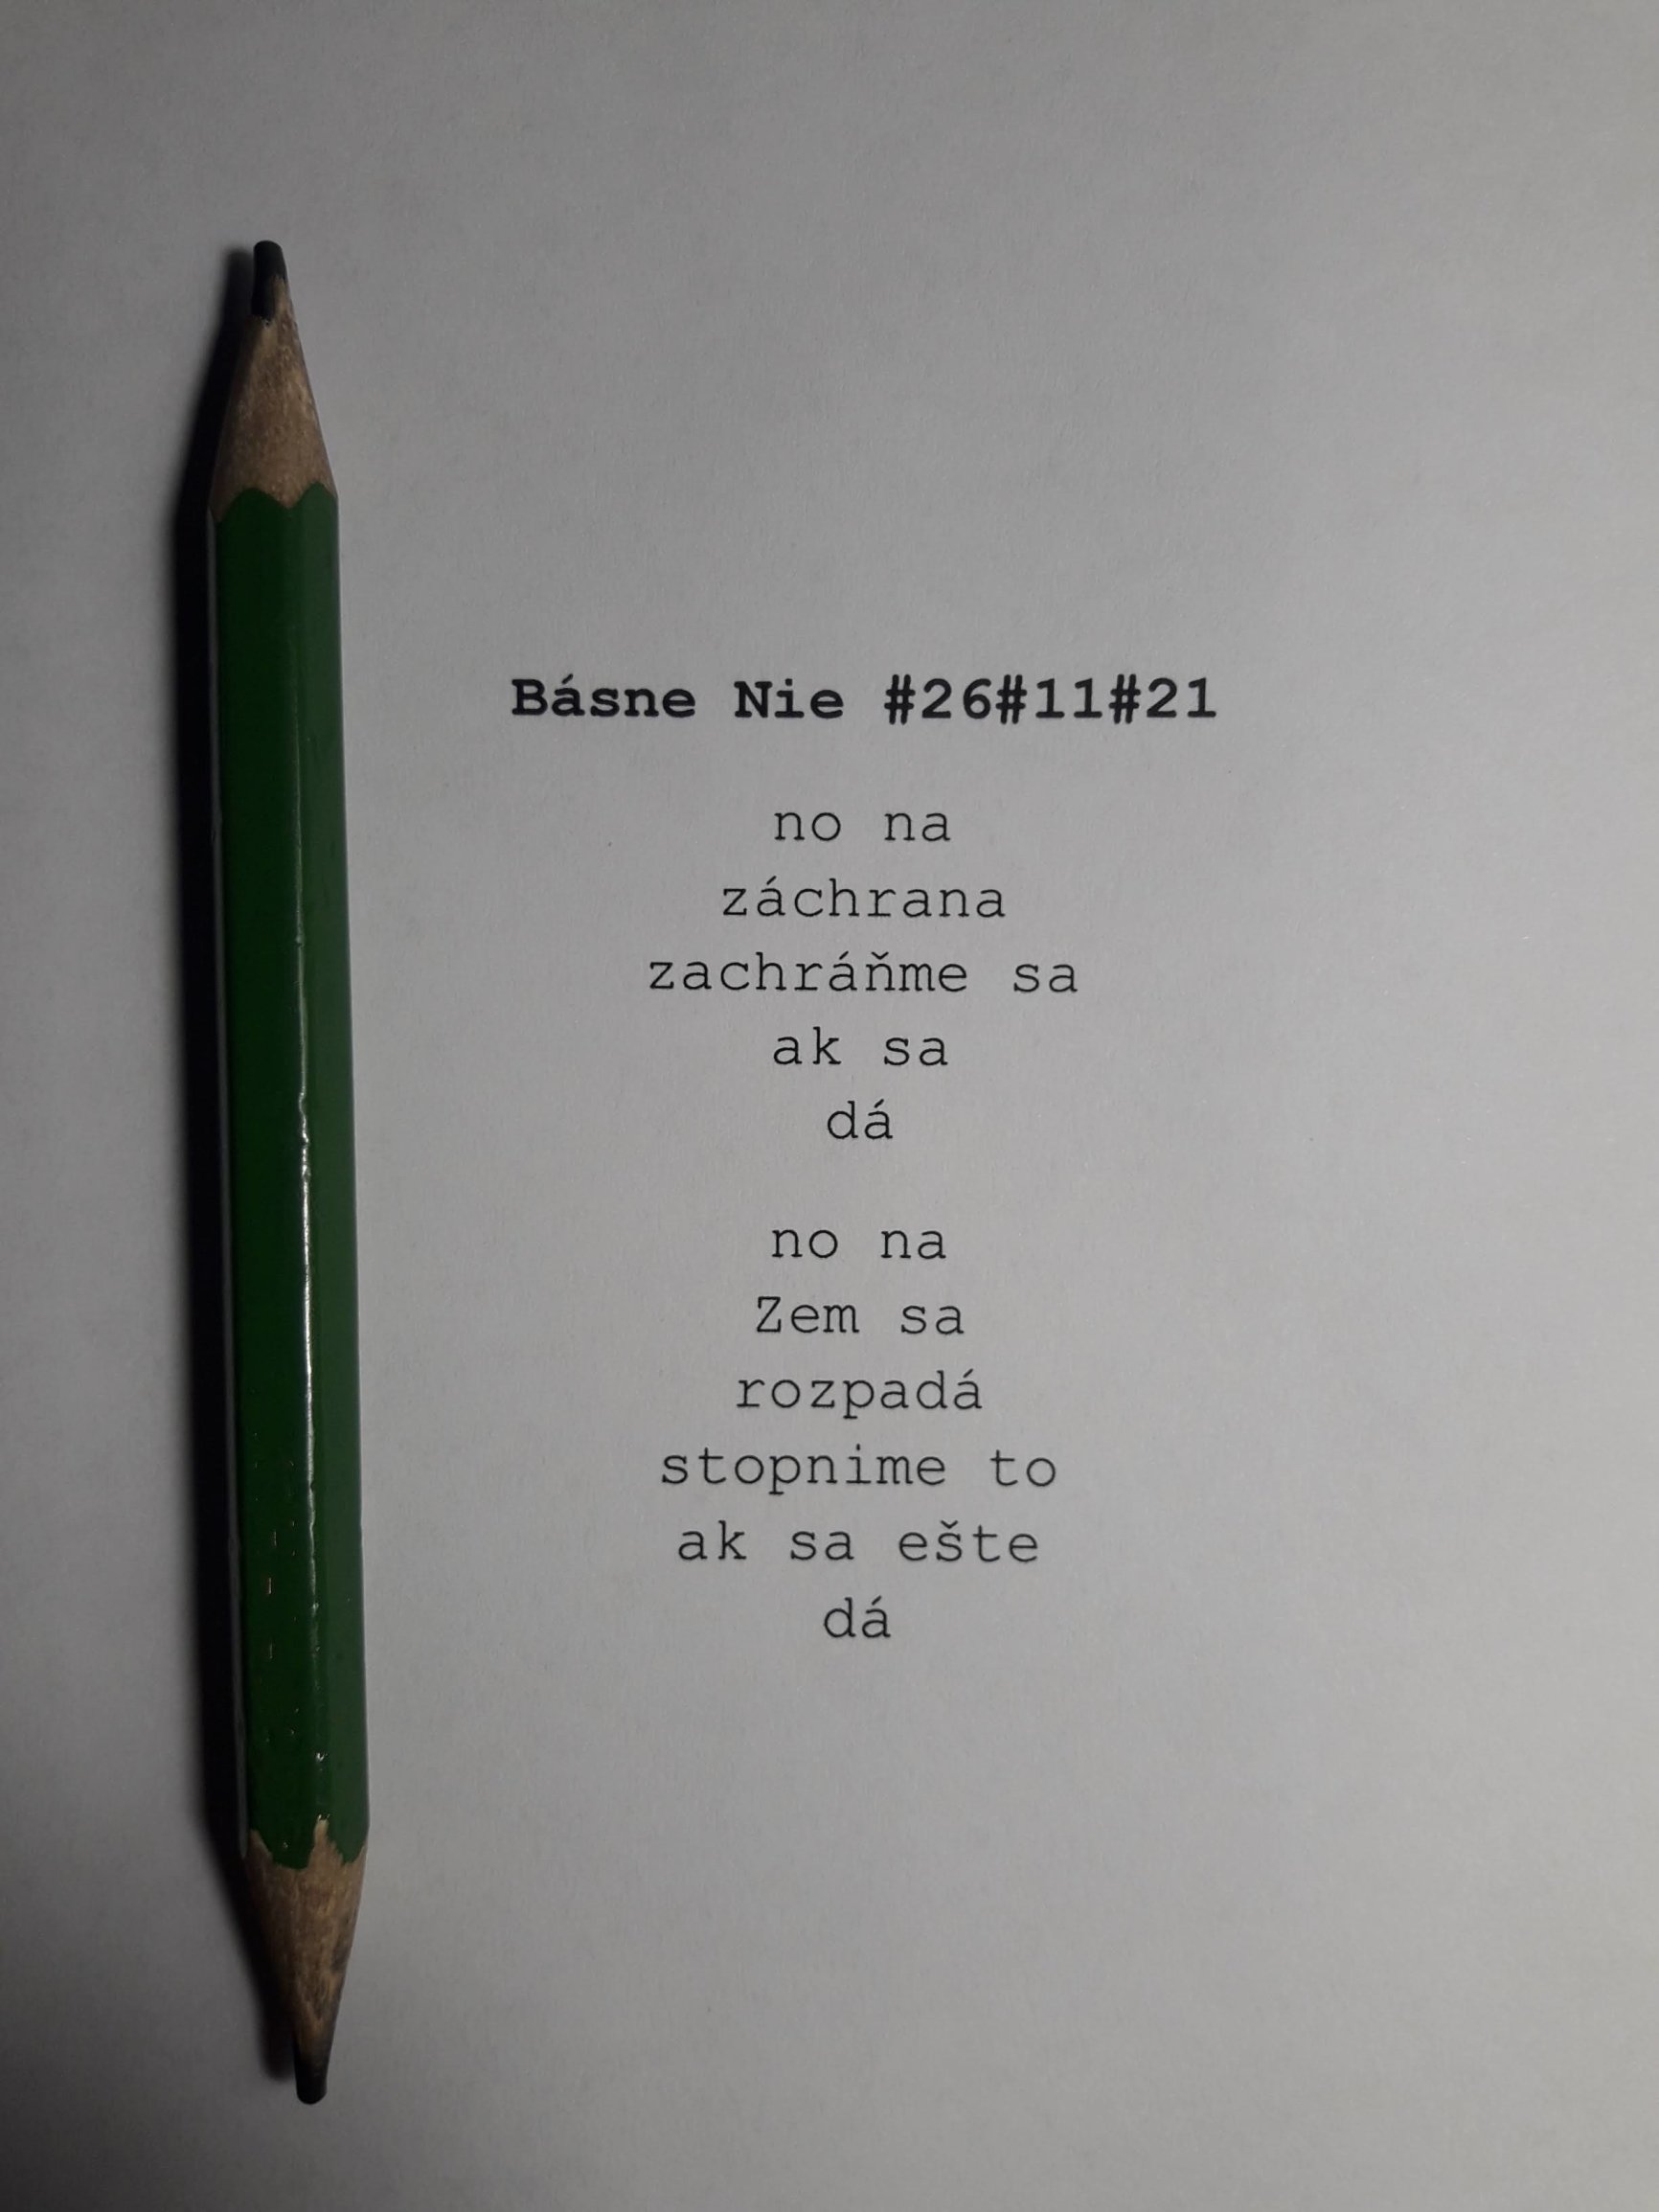 Básne Nie #26#11#21
no na
záchrana
zachráňme sa
ak sa
dá
no na
Zem sa
rozpadá
stopnime to
ak sa ešte
dá